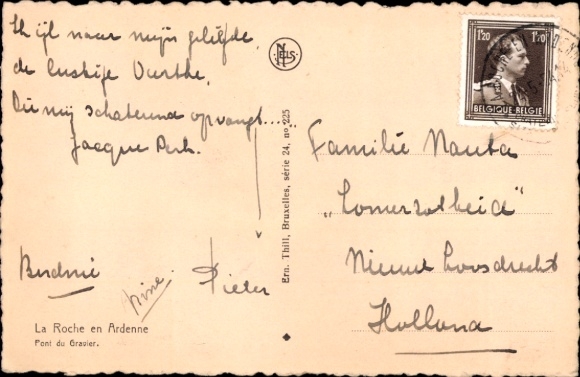 Ik ijl naar mijn geliefde,
de lustige Ourthe,
Die mij schaterend opvangt......
Jacque Perk.
Pieter
Nine
La Roche en Ardenne
Pont du Gravier.
NELS
Ern. Thill, Bruxelles, série 24, no 225
1.20 1.20
BELGIQUE-BELGIE
Familie Nauta
"Zomerzotheid"
Nieuw Loosdrecht
Holland